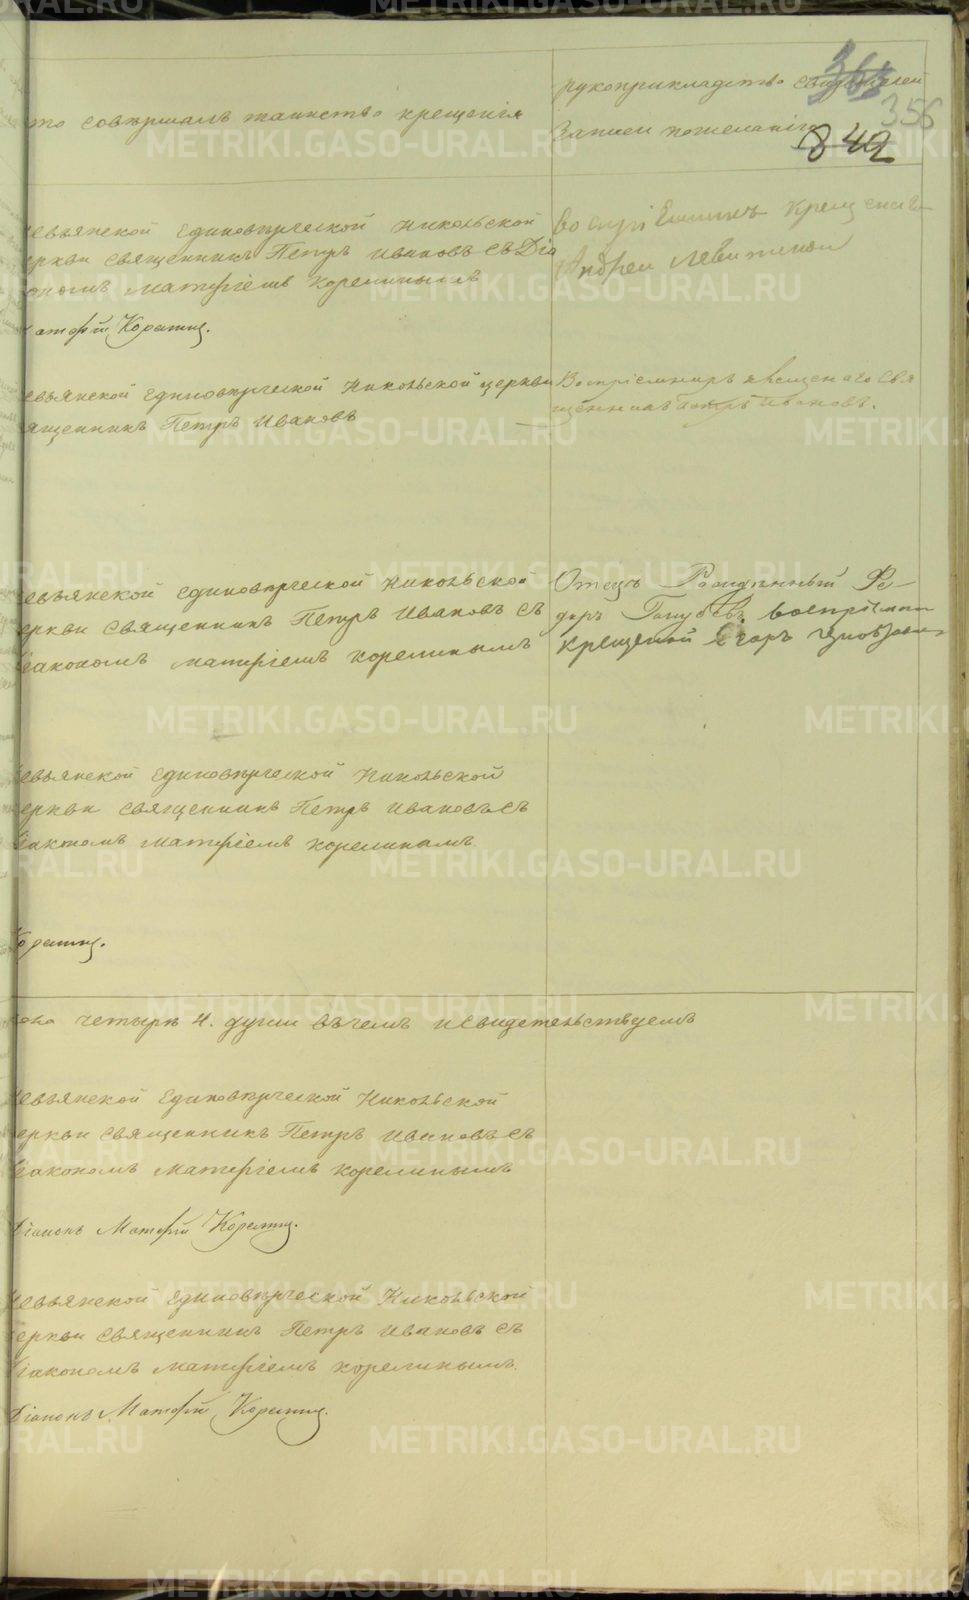 то совершалъ таинство крещенія
рукоприкладство свидетелей
записи по желанію
363
356
842
евьянской Единоверческой Никольской
еркви священникъ Петръ Ивановъ съ Діа
кономъ Матфіемъ Корелинымъ
атфій Корелинъ.
Воспріемникъ
Андрей Левитской
евьянской Единоверческой Никольской церкви
ященникъ Петръ Ивановъ
Воспріемникъ крещенаго Свя
щенникъ Петръ Ивановъ.
евьянской Единоверческой Никольской
еркви священникъ Петръ Ивановъ съ
іакономъ Матфіемъ Корелинымъ
Отецъ Рожденный Фе-
доръ Голубевъ воспріемни
крещеной Егоръ
евьянской Единоверческой Никольской
еркви священникъ Петръ Ивановъ съ
іакономъ Матфіемъ Корелинымъ
Корелинъ.
пола четыре 4. души въ чемъ и свидетельствуемъ
Невьянской Единоверческой Никольской
еркви священникъ Петръ Ивановъ съ
іакономъ Матфіемъ Корелинымъ
Діаконъ Матфій Корелинъ.
Невьянской Единоверческой Никольской
церкви священникъ Петръ Ивановъ съ
іакономъ Матфіемъ Корелинымъ.
Діаконъ Матфій Корелинъ.
METRIKI.GASO-URAL.RU